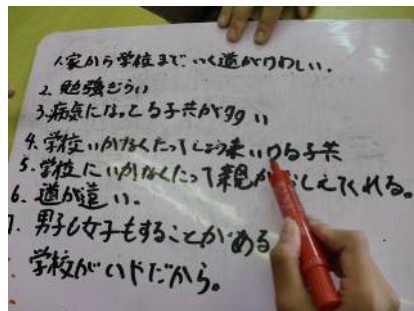 1.家から学校まで、いく道がけわしい。
2.勉強ぎらい
3.病気になってる子共が多い
4.学校いかなくたってしょう来いける子共
5.学校にいかなくたって親がおしえてくれる。
6.道が遠い。
7.男子も女子もすることがある
学校がいやだから。